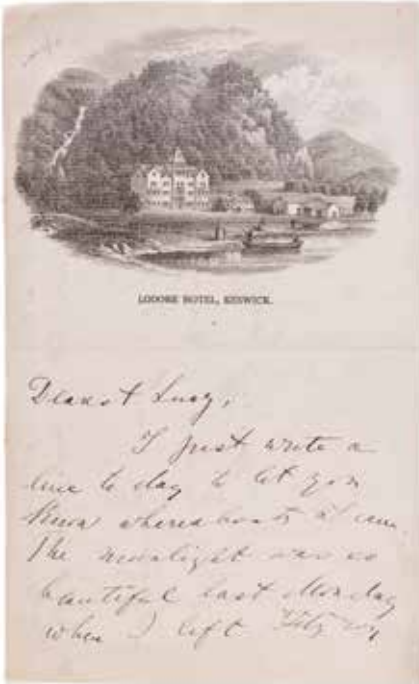 LODORE HOTEL, KESWICK.
Dearest Lucy,
I just write a
line to day to let you
know whereabouts I am
The moonlight was so
beautiful last Monday
when I left Fitzroy